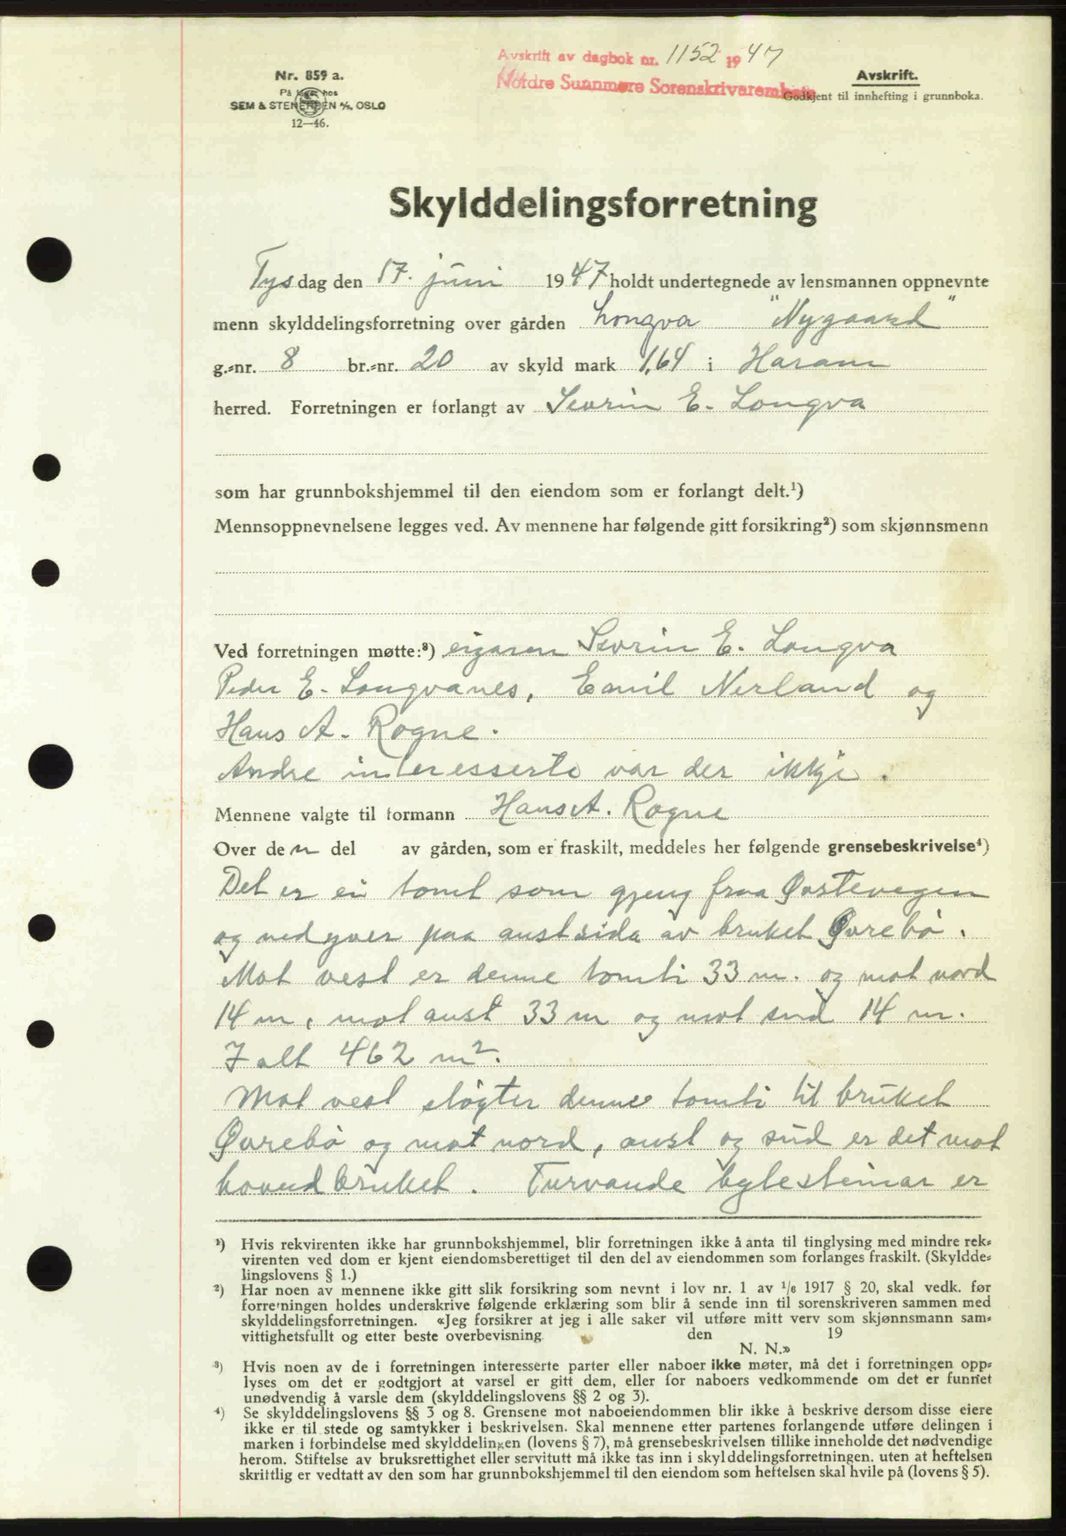 Avskrift av dagbok nr. 1152 1947
Nordre Sunnmøre Sorenskriverembete
Nr. 859 a.
På lager hos
SEM & STENERSEN A/S, OSLO
12—46.
Avskrift.
Godkjent til innhefting i grunnboka.
Skylddelingsforretning
Tysdag den 17. juni 1947 holdt undertegnede av lensmannen oppnevnte
menn skylddelingsforretning over gården Longva "Nygaard"
g.-nr. 8 br.-nr. 20 av skyld mark 1,64 i Haram
herred. Forretningen er forlangt av Sevrin E. Longva
som har grunnbokshjemmel til den eiendom som er forlangt delt.¹)
Mennsoppnevnelsene legges ved. Av mennene har følgende gitt forsikring²) som skjønnsmenn
Ved forretningen møtte:³) eigaren Sevrin E. Longva
Peder E. Longvanes, Emil Nerland og
Hans A. Rogne.
Andre interesserte var der ikkje.
Mennene valgte til formann Hans A. Rogne
Over den del av gården, som er fraskilt, meddeles her følgende grensebeskrivelse⁴)
Det er ei tomt som gjeng fraa Øvstevegen
og nedyver paa austsida av bruket Øvrebø.
Mot vest er denne tomti 33 m. og mot nord
14 m, mot aust 33 m og mot sud 14 m.
I alt 462 m².
Mot vest støyter denne tomti til bruket
Øvrebø og mot nord, aust og sud er det mot
hovudbruket. Turvande bytesteinar er
¹) Hvis rekvirenten ikke har grunnbokshjemmel, blir forretningen ikke å anta til tinglysing med mindre rek-
virenten ved dom er kjent eiendomsberettiget til den del av eiendommen som forlanges fraskilt. (Skyldde-
lingslovens § 1.)
²) Har noen av mennene ikke gitt slik forsikring som nevnt i lov nr. 1 av 1/6 1917 § 20, skal vedk. før
forretningen holdes underskrive følgende erklæring som blir å sende inn til sorenskriveren sammen med
skylddelingsforretningen. «Jeg forsikrer at jeg i alle saker vil utføre mitt verv som skjønnsmann sam-
vittighetsfullt og etter beste overbevisning. den 19
N. N.»
³) Hvis noen av de i forretningen interesserte parter eller naboer ikke møter, må det i forretningen opp-
lyses om det er godtgjort at varsel er gitt dem, eller for naboers vedkommende om det er funnet
unødvendig å varsle dem (skylddelingslovens §§ 2 og 3).
⁴) Se skylddelingslovens §§ 3 og 8. Grensene mot naboeiendommen blir ikke å beskrive dersom disse eiere
ikke er til stede og samtykker i beskrivelsen. Skal mennene etter partenes forlangende utføre delingen i
marken i forbindelse med skylddelingen (lovens § 7), må grensebeskrivelsen tillike inneholde det nødvendige
herom. Stiftelse av bruksrettighet eller servitutt må ikke tas inn i skylddelingsforretningen, uten at heftelsen
skriftlig er vedtatt av den som har grunnbokshjemmel til den eiendom som heftelsen skal hvile på (lovens § 5).